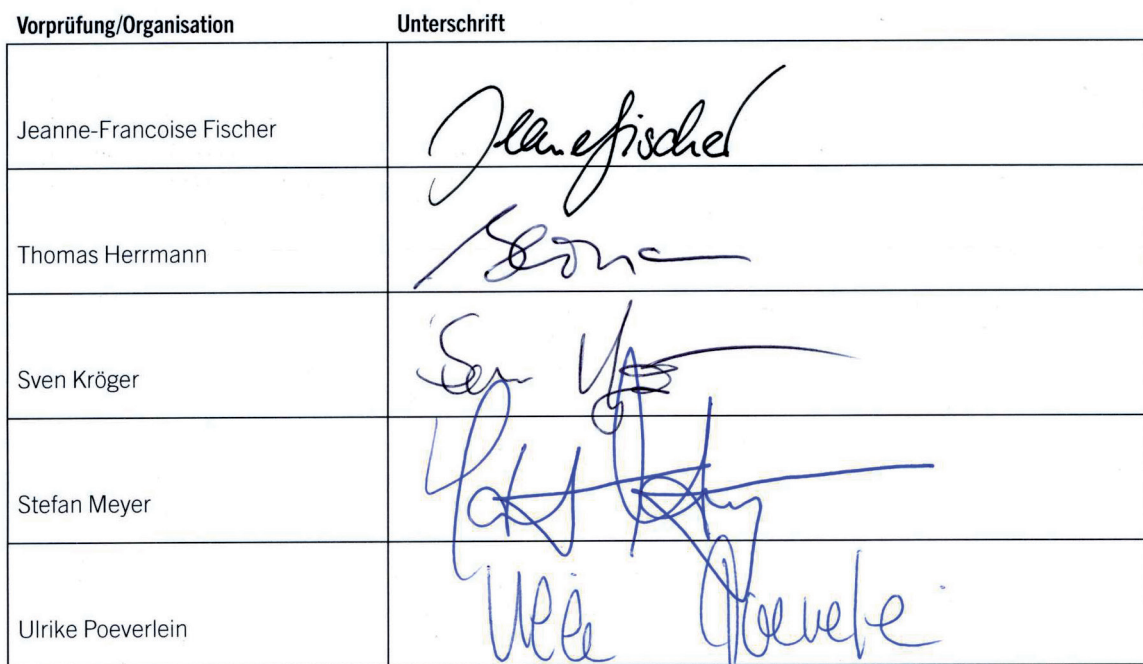 Vorprüfung/Organisation Unterschrift
Jeanne-Francoise Fischer Jeannefischer
Thomas Herrmann
Sven Kröger Sven
Stefan Meyer
Ulrike Poeverlein